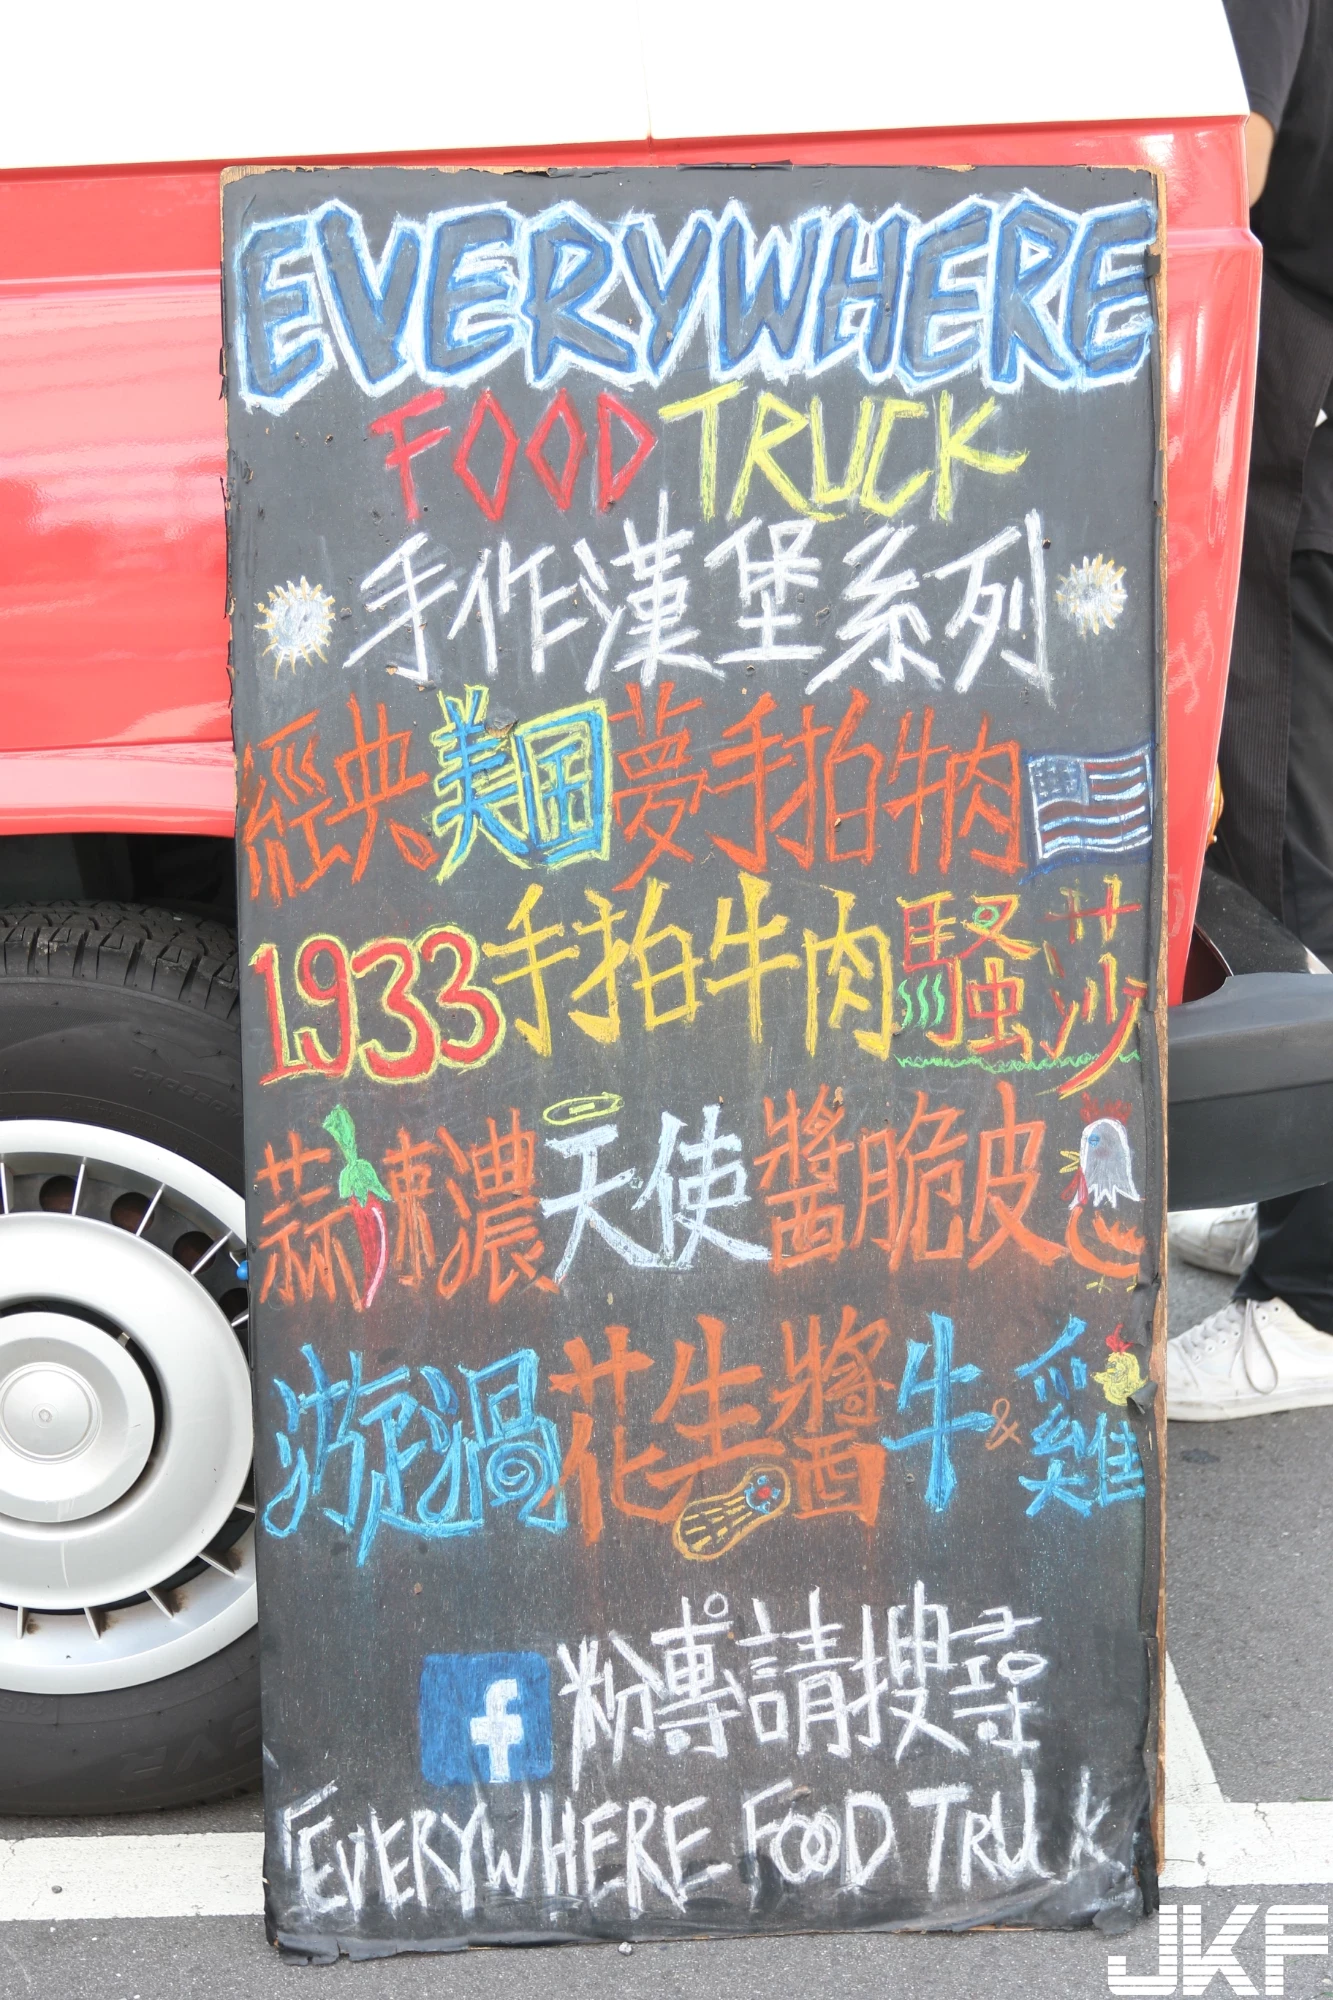 EVERYWHERE
FOOD TRUCK
手作漢堡系列
經典美国夢手拍牛肉
1933手拍牛肉騷莎
蒜辣濃天使醬脆皮
漩渦花生醬牛&雞
f 粉專請搜尋
EVERYWHERE FOOD TRUCK
JKF